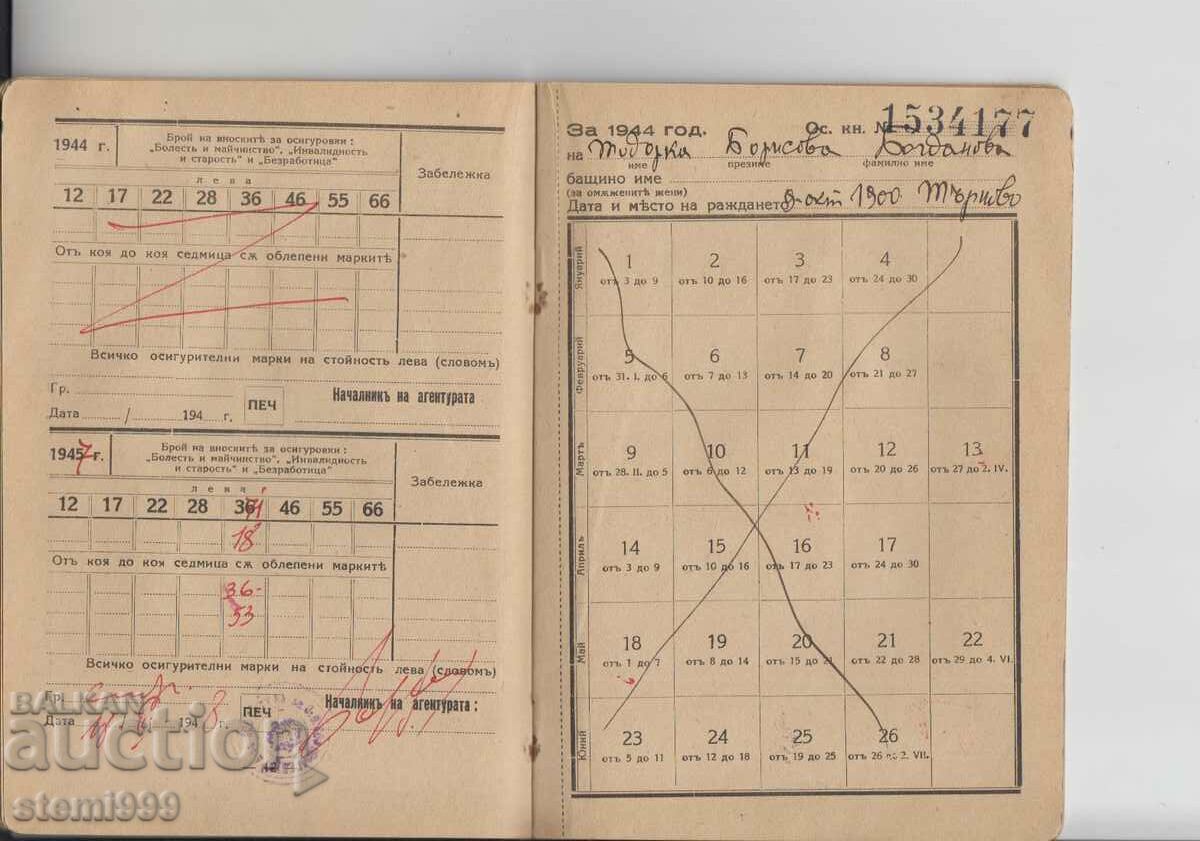 1944 г.
Брой на вноскитѣ за осигуровки :
„Болесть и майчинство", „Инвалидность
и старость" и „Безработица"
Забележка
лева
12 17 22 28 36 46 55 66
Отъ коя до коя седмица сѫ облепени маркитѣ
Всичко осигурителни марки на стойность лева (словомъ)
Гр.
ПЕЧ
Началникъ на агентурата
Дата / 194 г.
1945 7 г.
Брой на вноскитѣ за осигуровки :
„Болесть и майчинство", „Инвалидность
и старость" и „Безработица"
Забележка
лева
12 17 22 28 36 46 55 66
18
Отъ коя до коя седмица сѫ облепени маркитѣ
36-
53
Всичко осигурителни марки на стойность лева (словомъ)
Гр.
ПЕЧ
Началникъ на агентурата :
Дата 194 8 г.
За 1944 год. Ос. кн. № 1534177
на Тодорка Борисова Богданова
име презиме фамилно име
бащино име
(за омѫженитѣ жени)
Дата и мѣсто на раждането 9-окт 1900 Търново
Януарий
1 2 3 4
отъ 3 до 9 отъ 10 до 16 отъ 17 до 23 отъ 24 до 30
Февруарий
5 6 7 8
отъ 31. I. до 6 отъ 7 до 13 отъ 14 до 20 отъ 21 до 27
Мартъ
9 10 11 12 13
отъ 28. II. до 5 отъ 6 до 12 отъ 13 до 19 отъ 20 до 26 отъ 27 до 2. IV.
Априлъ
14 15 16 17
отъ 3 до 9 отъ 10 до 16 отъ 17 до 23 отъ 24 до 30
Май
18 19 20 21 22
отъ 1 до 7 отъ 8 до 14 отъ 15 до 21 отъ 22 до 28 отъ 29 до 4. VI.
Юний
23 24 25 26
отъ 5 до 11 отъ 12 до 18 отъ 19 до 25 отъ 26 до 2. VII.
BALKAN
auction
stemi999